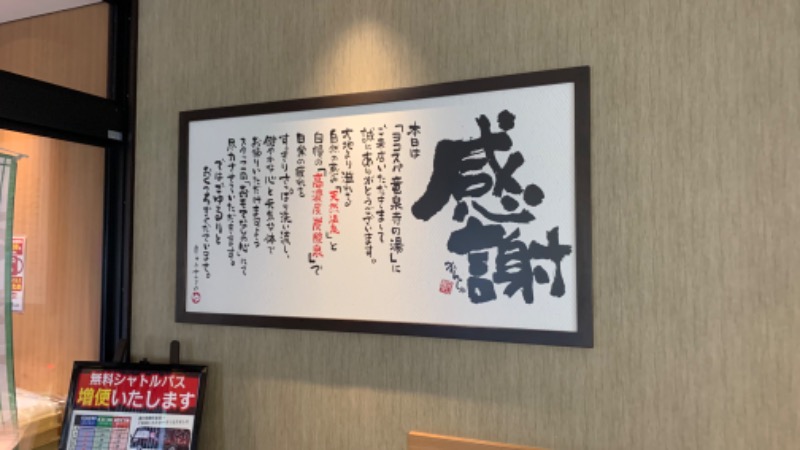 感謝
かんしゃ
本日は
「ヨコスパ竜泉寺の湯」に
ご来店いただきまして
誠にありがとうございます。
大地より溢れる
自然の恵み「天然温泉」と
自慢の「高濃度炭酸泉」で
日常の疲れを
すっきりさっぱり洗い流し、
健やかな心と元気な体で
お帰りいただけますよう
スタッフ一同「おもてなしの心」にて
尽力させていただきます。
ではごゆるりと
おくつろぎくださいませ。
無料シャトルバス
増便いたします